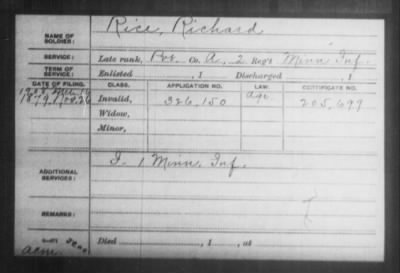 NAME OF SOLDIER: Rice, Richard
SERVICE: Late rank, Pvt. Co. A, 2 Reg't Minn Inf.
TERM OF SERVICE: Enlisted , 1 Discharged , 1
DATE OF FILING. CLASS. APPLICATION NO. LAW. CERTIFICATE NO.
1879, Invalid, 326,150 Age 205,699
Widow,
Minor,
ADDITIONAL SERVICES: I 1 Minn. Inf.
REMARKS:
Died , 1 , at